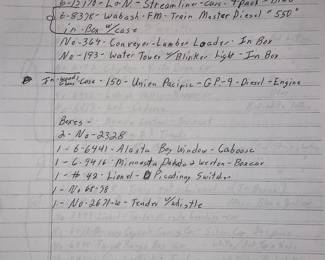 6-12170-L&N-Streamliner-cars-4 pack-
6-8378-Wabash-FM-Train Master Diesel "550"
in-Box w/case
No-364-Conveyer-Lumber Loader-In Box
No-193-Water Tower w/Blinker Light-In Box
In-wood/Glass-Case-150-Union Pacific-GP-9-Diesel-Engine
Boxes-
2-No-2328
1-6-6441-Alaska Bay Window-Caboose
1-6-9416-Minnesota Dakota & Western-Boxcar
1-#42-Lionel-Picadilly Switcher
1-No
1-No-2671-W-Tender w/whistle